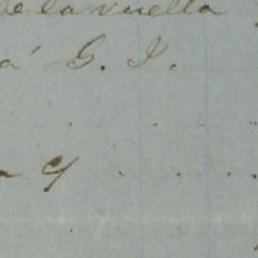 de la vuelta
á G. I.
y . . . .